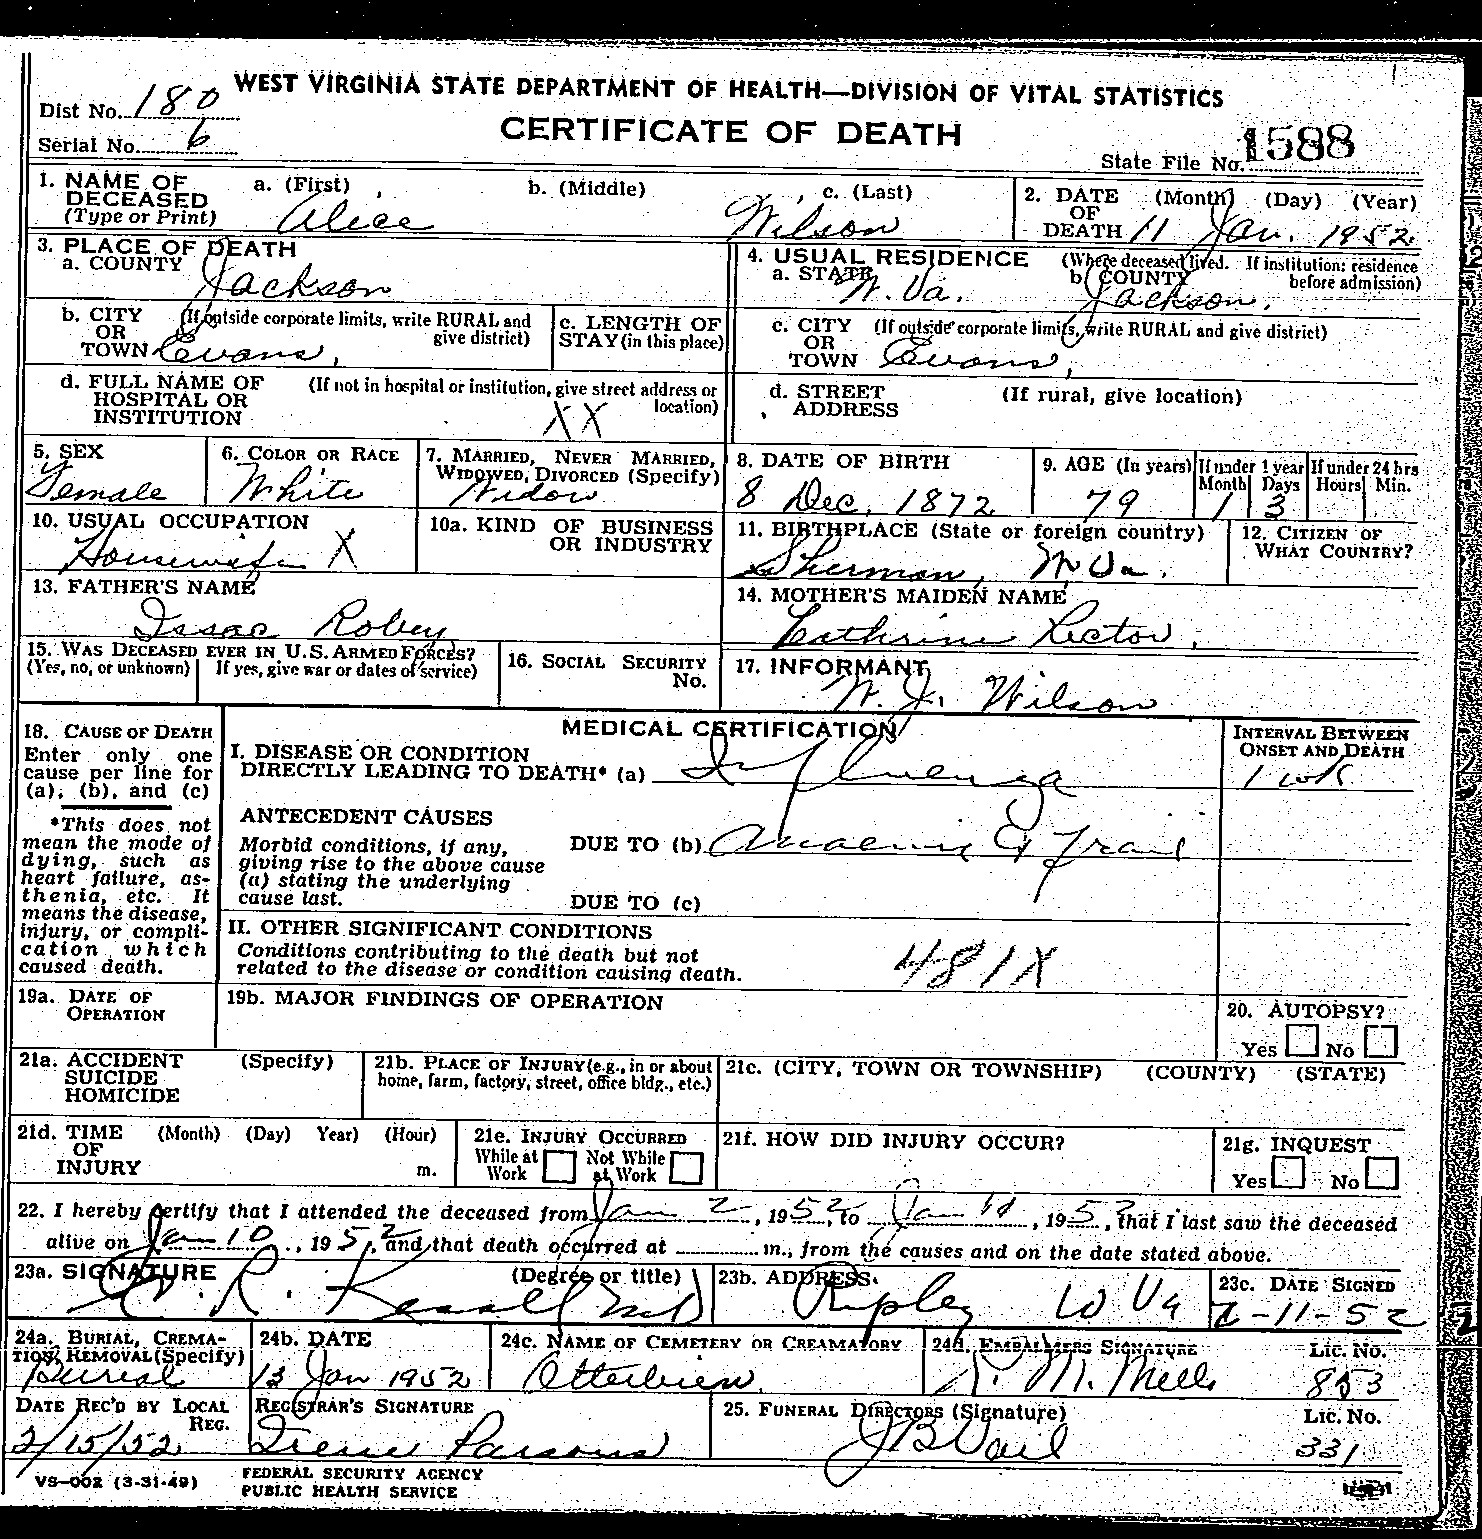 WEST VIRGINIA STATE DEPARTMENT OF HEALTH—DIVISION OF VITAL STATISTICS
Dist No. 180
CERTIFICATE OF DEATH
Serial No. 6
State File No. 1588
1. NAME OF DECEASED (Type or Print) a. (First) Alice b. (Middle) c. (Last) Wilson
2. DATE OF DEATH (Month) (Day) (Year) 11 Jan. 1952
3. PLACE OF DEATH
a. COUNTY Jackson
4. USUAL RESIDENCE (Where deceased lived. If institution: residence before admission)
a. STATE W. Va. b. COUNTY Jackson.
b. CITY OR TOWN (If outside corporate limits, write RURAL and give district) Evans,
c. LENGTH OF STAY (in this place)
c. CITY OR TOWN (If outside corporate limits, write RURAL and give district) Evans,
d. FULL NAME OF HOSPITAL OR INSTITUTION (If not in hospital or institution, give street address or location) XX
d. STREET ADDRESS (If rural, give location)
5. SEX Female
6. COLOR OR RACE White
7. MARRIED, NEVER MARRIED, WIDOWED, DIVORCED (Specify) Widow
8. DATE OF BIRTH 8 Dec. 1872
9. AGE (In years) 79 If under 1 year Month 1 Days 3 If under 24 hrs Hours Min.
10. USUAL OCCUPATION Housewife X
10a. KIND OF BUSINESS OR INDUSTRY
11. BIRTHPLACE (State or foreign country) Sherman, W Va.
12. CITIZEN OF WHAT COUNTRY?
13. FATHER'S NAME Issac Robey
14. MOTHER'S MAIDEN NAME Cathrine Rector,
15. WAS DECEASED EVER IN U.S. ARMED FORCES?
(Yes, no, or unknown) If yes, give war or dates of service)
16. SOCIAL SECURITY No.
17. INFORMANT W. J. Wilson
18. CAUSE OF DEATH
Enter only one cause per line for (a), (b), and (c)
*This does not mean the mode of dying, such as heart failure, asthenia, etc. It means the disease, injury, or complication which caused death.
MEDICAL CERTIFICATION
INTERVAL BETWEEN ONSET AND DEATH
I. DISEASE OR CONDITION DIRECTLY LEADING TO DEATH* (a) Influenza 1 wk
ANTECEDENT CAUSES
Morbid conditions, if any, giving rise to the above cause (a) stating the underlying cause last.
DUE TO (b) Anaemic & Frail
DUE TO (c)
II. OTHER SIGNIFICANT CONDITIONS
Conditions contributing to the death but not related to the disease or condition causing death.
481X
19a. DATE OF OPERATION
19b. MAJOR FINDINGS OF OPERATION
20. AUTOPSY? Yes No
21a. ACCIDENT SUICIDE HOMICIDE (Specify)
21b. PLACE OF INJURY (e.g., in or about home, farm, factory, street, office bldg., etc.)
21c. (CITY, TOWN OR TOWNSHIP) (COUNTY) (STATE)
21d. TIME OF INJURY (Month) (Day) Year) (Hour) m.
21e. INJURY OCCURRED While at Work Not While at Work
21f. HOW DID INJURY OCCUR?
21g. INQUEST Yes No
22. I hereby certify that I attended the deceased from Jan 2, 1952, to Jan 11, 1952, that I last saw the deceased
alive on Jan 10, 1952, and that death occurred at m., from the causes and on the date stated above.
23a. SIGNATURE (Degree or title) R. Kessel MD
23b. ADDRESS. Ripley W Va
23c. DATE SIGNED -11-52
24a. BURIAL, CREMATION, REMOVAL (Specify) Burial
24b. DATE 13 Jan 1952
24c. NAME OF CEMETERY OR CREAMATORY Otterbien
24d. EMBALMERS SIGNATURE R. M. Mills Lic. No. 853
DATE REC'D BY LOCAL REG. 2/15/52
REGISTRAR'S SIGNATURE Irene Parsons
25. FUNERAL DIRECTORS (Signature) JB Vail Lic. No. 331
VS-002 (3-31-49)
FEDERAL SECURITY AGENCY
PUBLIC HEALTH SERVICE